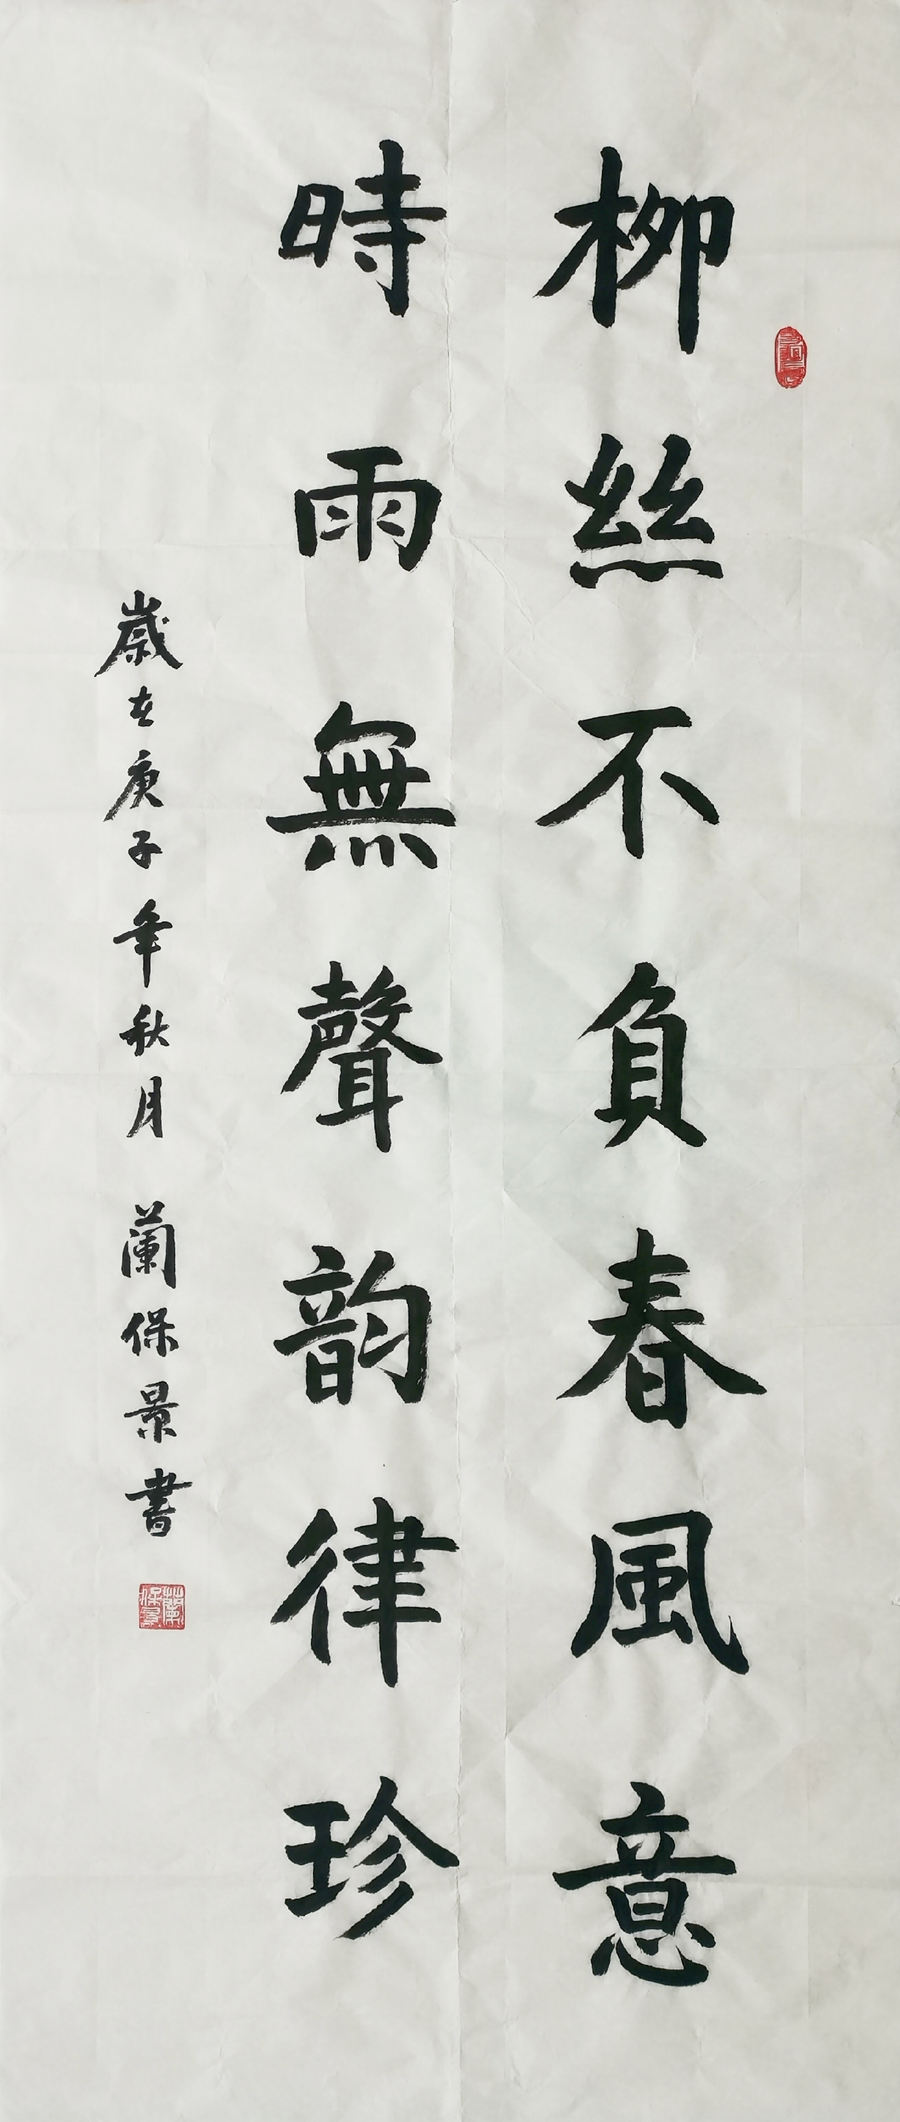 柳絲不負春風意
時雨無聲韵律珍
歲在庚子年秋月 蘭保景書